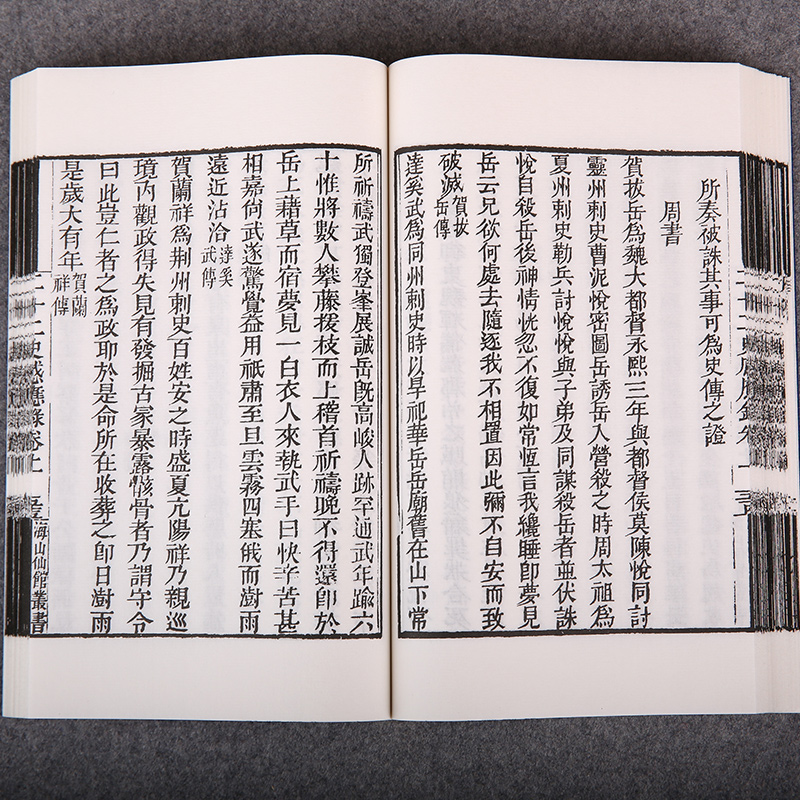 所奏破誅其事可為史傳之證
周書
賀拔岳為魏大都督永熙三年與都督侯莫陳悅同討
靈州刺史曹泥悅密圖岳誘岳入營殺之時周太祖為
夏州刺史勒兵討悅悅與子弟及同謀殺岳者並伏誅
悅自殺岳後神情恍忽不復如常恆言我纔睡即夢見
岳云兄欲何處去隨逐我不相置因此彌不自安而致
破滅賀拔岳傳
達奚武為同州刺史時以旱祀華岳岳廟舊在山下常
所祈禱武獨登峯展誠岳既高峻人跡罕通武年踰六
十惟將數人攀藤援枝而上稽首祈禱晚不得還即於
岳上藉草而宿夢見一白衣人來執武手曰快辛苦甚
相嘉尚武遂驚覺益用祇肅至旦雲霧四塞俄而澍雨
遠近沾洽達奚武傳
賀蘭祥為荆州刺史百姓安之時盛夏亢陽祥乃親巡
境內觀政得失見有發掘古冢暴露骸骨者乃謂守令
曰此豈仁者之為政耶於是命所在收葬之即日澍雨
是歲大有年賀蘭祥傳
二十二史感應錄卷上
海山仙館叢書